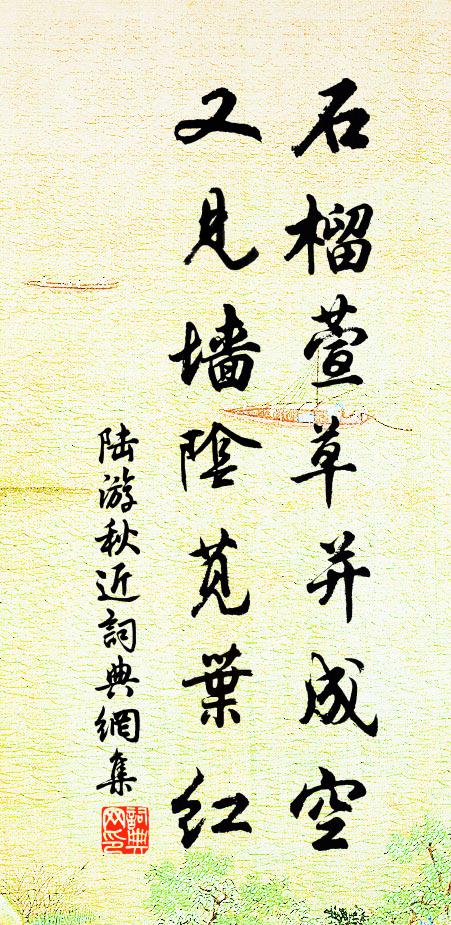 石榴萱草并成空
又見墙陰莧葉紅
陆游秋近詞典網集
詞典網印